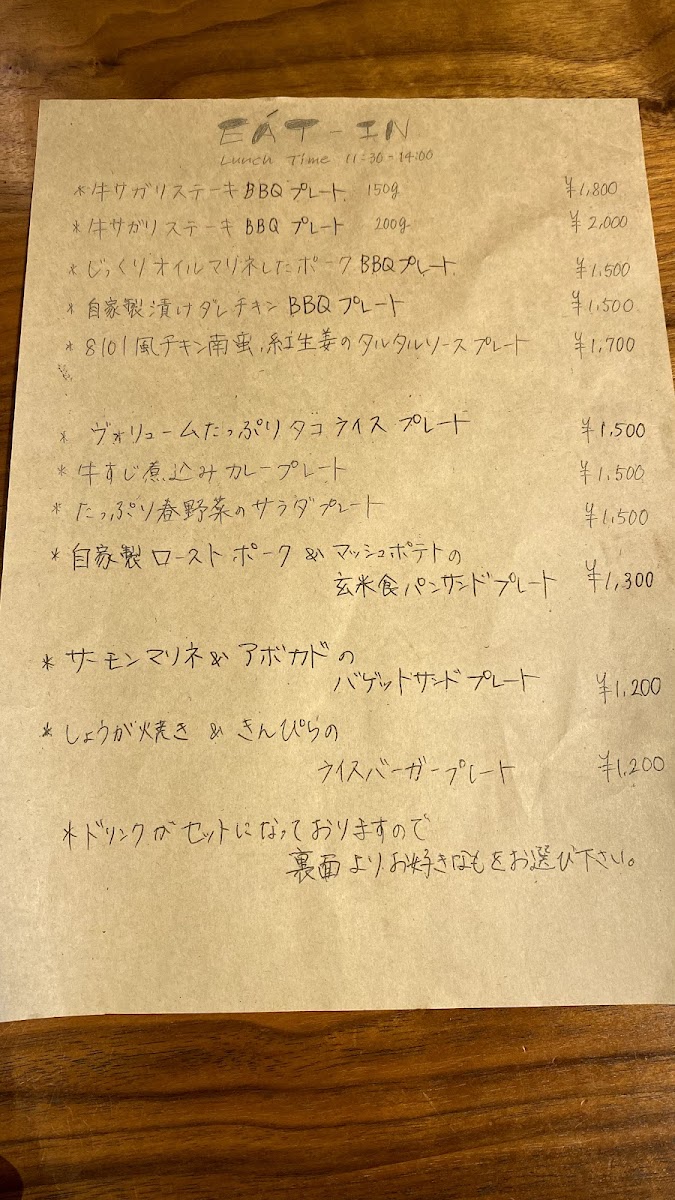 EAT-IN
Lunch Time 11:30-14:00
*牛サガリステーキBBQプレート 150g ¥1,800
*牛サガリステーキBBQプレート 200g ¥2,000
*じっくりオイルマリネしたポークBBQプレート ¥1,500
*自家製漬けダレチキンBBQプレート ¥1,500
*8101風チキン南蛮、紅生姜のタルタルソースプレート ¥1,700
* ヴォリュームたっぷりタコライスプレート ¥1,500
*牛すじ煮込みカレープレート ¥1,500
*たっぷり春野菜のサラダプレート ¥1,500
*自家製ローストポーク&マッシュポテトの
玄米食パンサンドプレート ¥1,300
*サーモンマリネ&アボカドの
バゲッドサンドプレート ¥1,200
*しょうが焼き&きんぴらの
ライスバーガープレート ¥1,200
*ドリンクがセットになっておりますので
裏面よりお好きなもをお選び下さい。